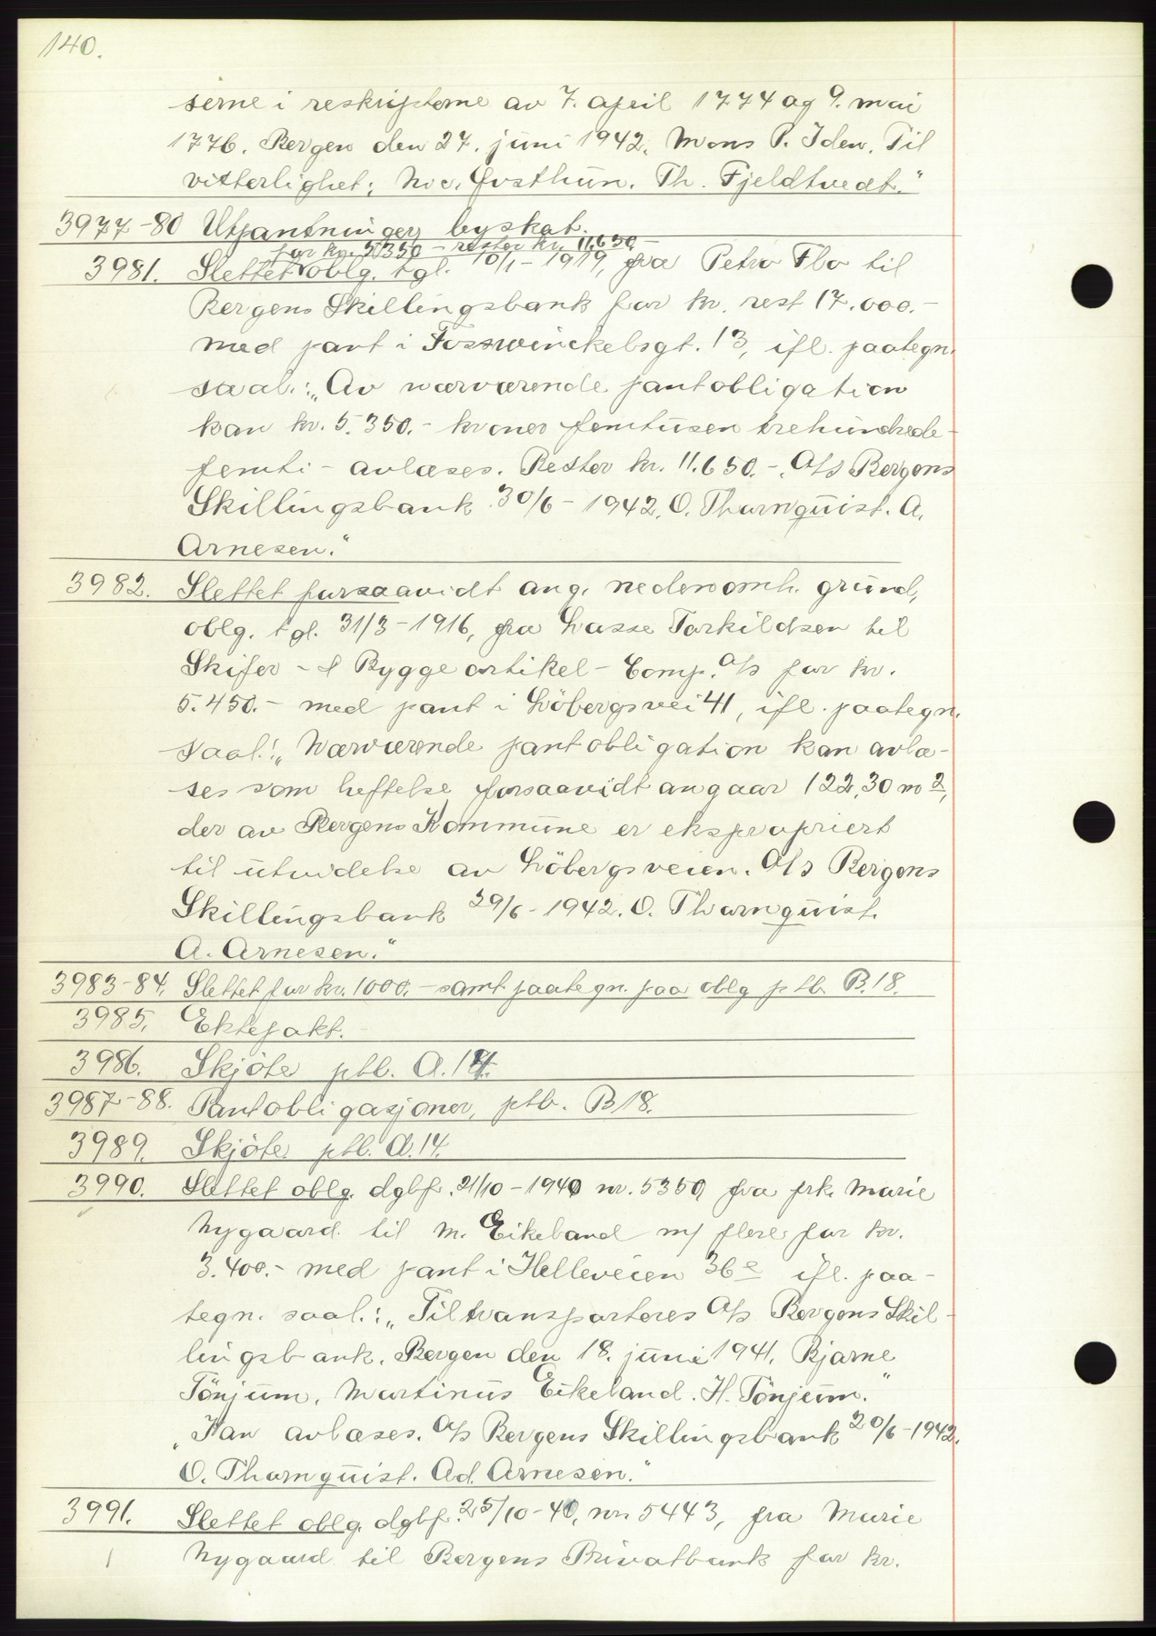 140.
serne i reskripterne av 7. april 1774 og 9. mai
1776. Bergen den 27. juni 1942. Mons P. Iden. Til
vitterlighet: Nic. Gvsthun. Th. Fjeldtvedt."
3977-80 Utpantninger byskat.
for kr. 5350 - rester kr. 11.650 -
3981. Slettet oblg. tgl. 10/1 - 1919, fra Petra Flo til
Bergens Skillingsbank for kr. rest 17.000.-
med pant i Fosswinckelsgt. 13, ifl. paategn.
saal.: "Av nærværende pantobligation
kan kr. 5.350.- kroner femtusen trehundrede-
femti - avlæses. Rester kr. 11.650.-. A/s Bergens
Skillingsbank 30/6 - 1942. O. Thornquist. A.
Arnesen."
3982. Slettet forsaavidt ang. nedenomh. grund,
oblg. tgl. 31/3 - 1916, fra Lasse Torkildsen til
Skifer - & Byggeartikel - Comp. A/s for kr.
5.450.- med pant i Löbergsvei 41, ifl. paategn.
saal.: "Nærværende pantobligation kan avlæ-
ses som heftelse forsaavidt angaar 122,30 m2,
der av Bergens Kommune er ekspropriert
til utvidelse av Löbergsveien. A/s Bergens
Skillingsbank 29/6 - 1942. O. Thornquist.
A. Arnesen."
3983-84. Slettet for kr. 1000.- samt paategn. paa oblg ptb. B.18.
3985. Ektepakt.
3986. Skjöte ptb. A.14.
3987-88. Pantobligasjoner, ptb. B18.
3989. Skjöte ptb. A.14.
3990. Slettet oblg. dgbf. 21/10 - 1940 nr. 5350, fra frk. Marie
Nygaard til M. Eikeland m/ flere for kr.
3.400.- med pant i Helleveien 36e ifl. paa-
tegn. saal.: "Tiltransporteres A/s Bergens Skil-
lingsbank. Bergen den 18. juni 1941. Bjarne
Tönjum. Martinus Eikeland. H. Tönjum."
"Kan avlæses. A/s Bergens Skillingsbank 20/6 - 1942.
O. Thornquist. Ad. Arnesen."
3991. Slettet oblg. dgbf. 25/10 - 40, nr. 5443, fra Marie
Nygaard til Bergens Privatbank for kr.